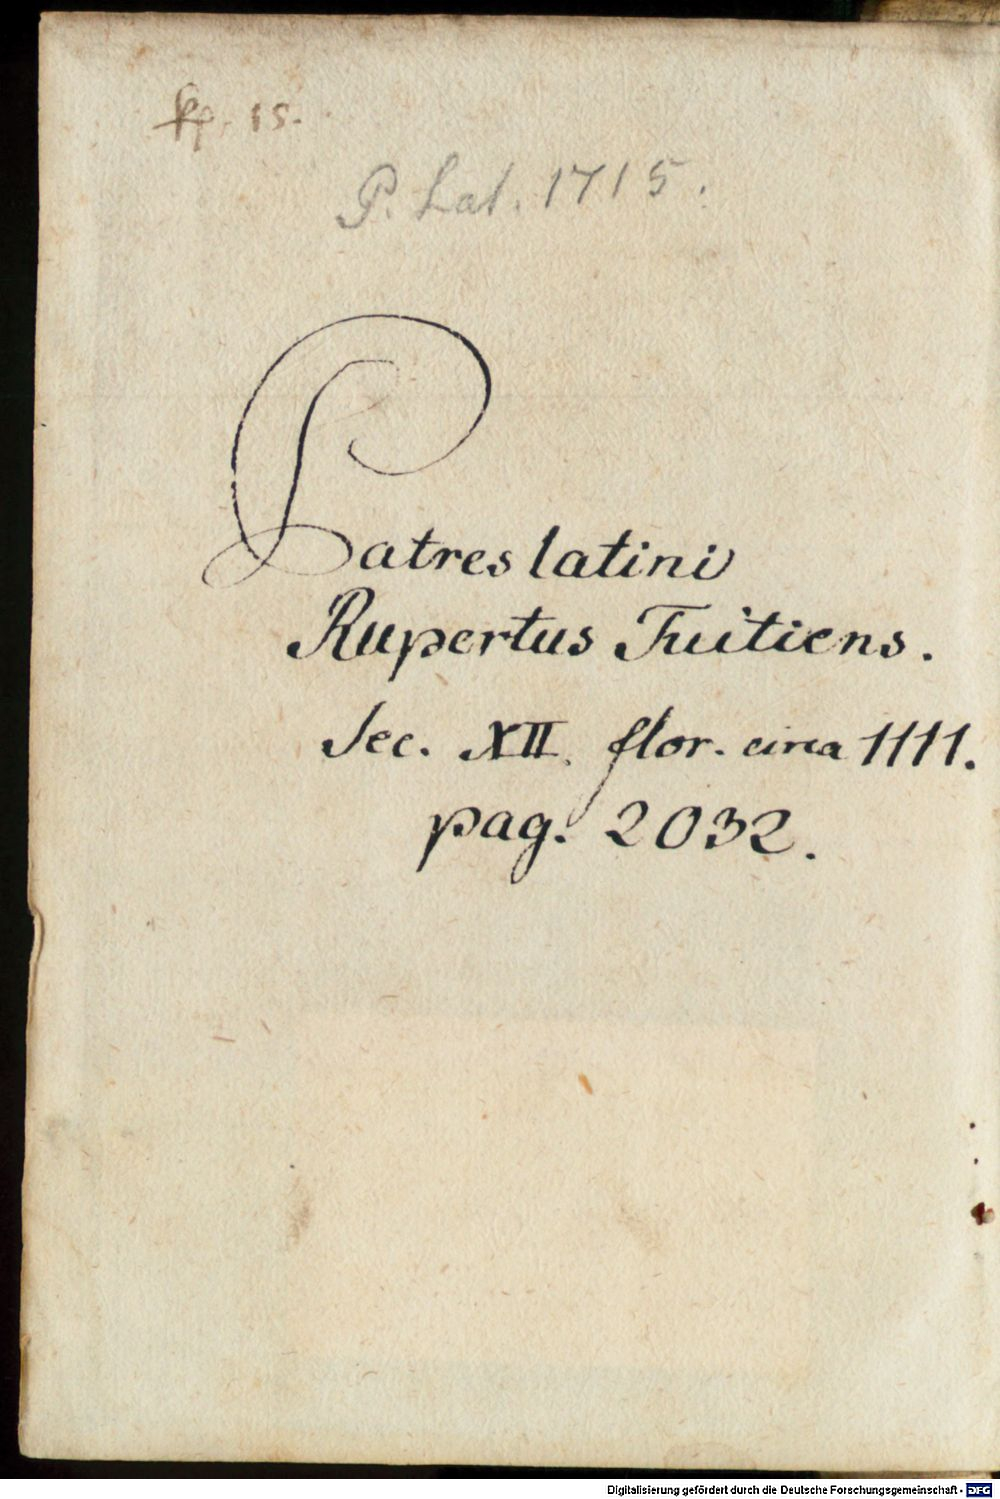 kp. 15.
P. Lat. 1715.
Patres latini
Rupertus Tuitiens.
Sec. XII. flor. circa 1111.
pag. 2032.
Digitalisierung gefördert durch die Deutsche Forschungsgemeinschaft - DFG